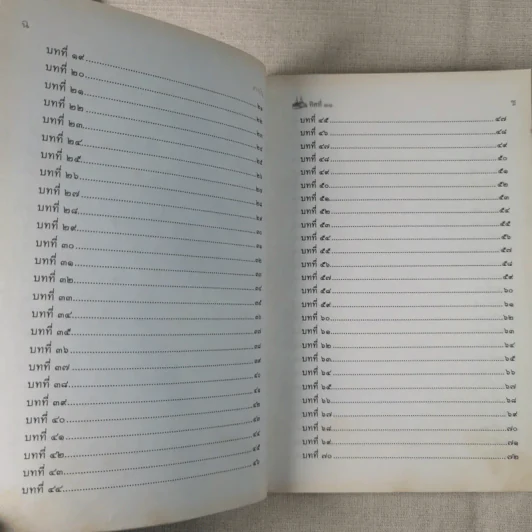 บทที่ ๑๙
บทที่ ๒๐
บทที่ ๒๑
บทที่ ๒๒
บทที่ ๒๓
บทที่ ๒๔
บทที่ ๒๕
บทที่ ๒๖
บทที่ ๒๗
บทที่ ๒๘
บทที่ ๒๙
บทที่ ๓๐
บทที่ ๓๑
บทที่ ๓๒
บทที่ ๓๓
บทที่ ๓๔
บทที่ ๓๕
บทที่ ๓๖
บทที่ ๓๗
บทที่ ๓๘
บทที่ ๓๙
บทที่ ๔๐
บทที่ ๔๑
บทที่ ๔๒
บทที่ ๔๓
บทที่ ๔๔
บทที่ ๔๕ ๔๗
บทที่ ๔๖ ๔๘
บทที่ ๔๗ ๔๙
บทที่ ๔๘ ๕๐
บทที่ ๔๙ ๕๑
บทที่ ๕๐ ๕๒
บทที่ ๕๑ ๕๓
บทที่ ๕๒ ๕๔
บทที่ ๕๓ ๕๕
บทที่ ๕๔ ๕๖
บทที่ ๕๕ ๕๗
บทที่ ๕๖ ๕๘
บทที่ ๕๗ ๕๙
บทที่ ๕๘ ๖๐
บทที่ ๕๙ ๖๑
บทที่ ๖๐ ๖๒
บทที่ ๖๑ ๖๓
บทที่ ๖๒ ๖๔
บทที่ ๖๓ ๖๕
บทที่ ๖๔ ๖๖
บทที่ ๖๕ ๖๗
บทที่ ๖๖ ๖๘
บทที่ ๖๗ ๖๙
บทที่ ๖๘ ๗๐
บทที่ ๖๙ ๗๑
บทที่ ๗๐ ๗๒